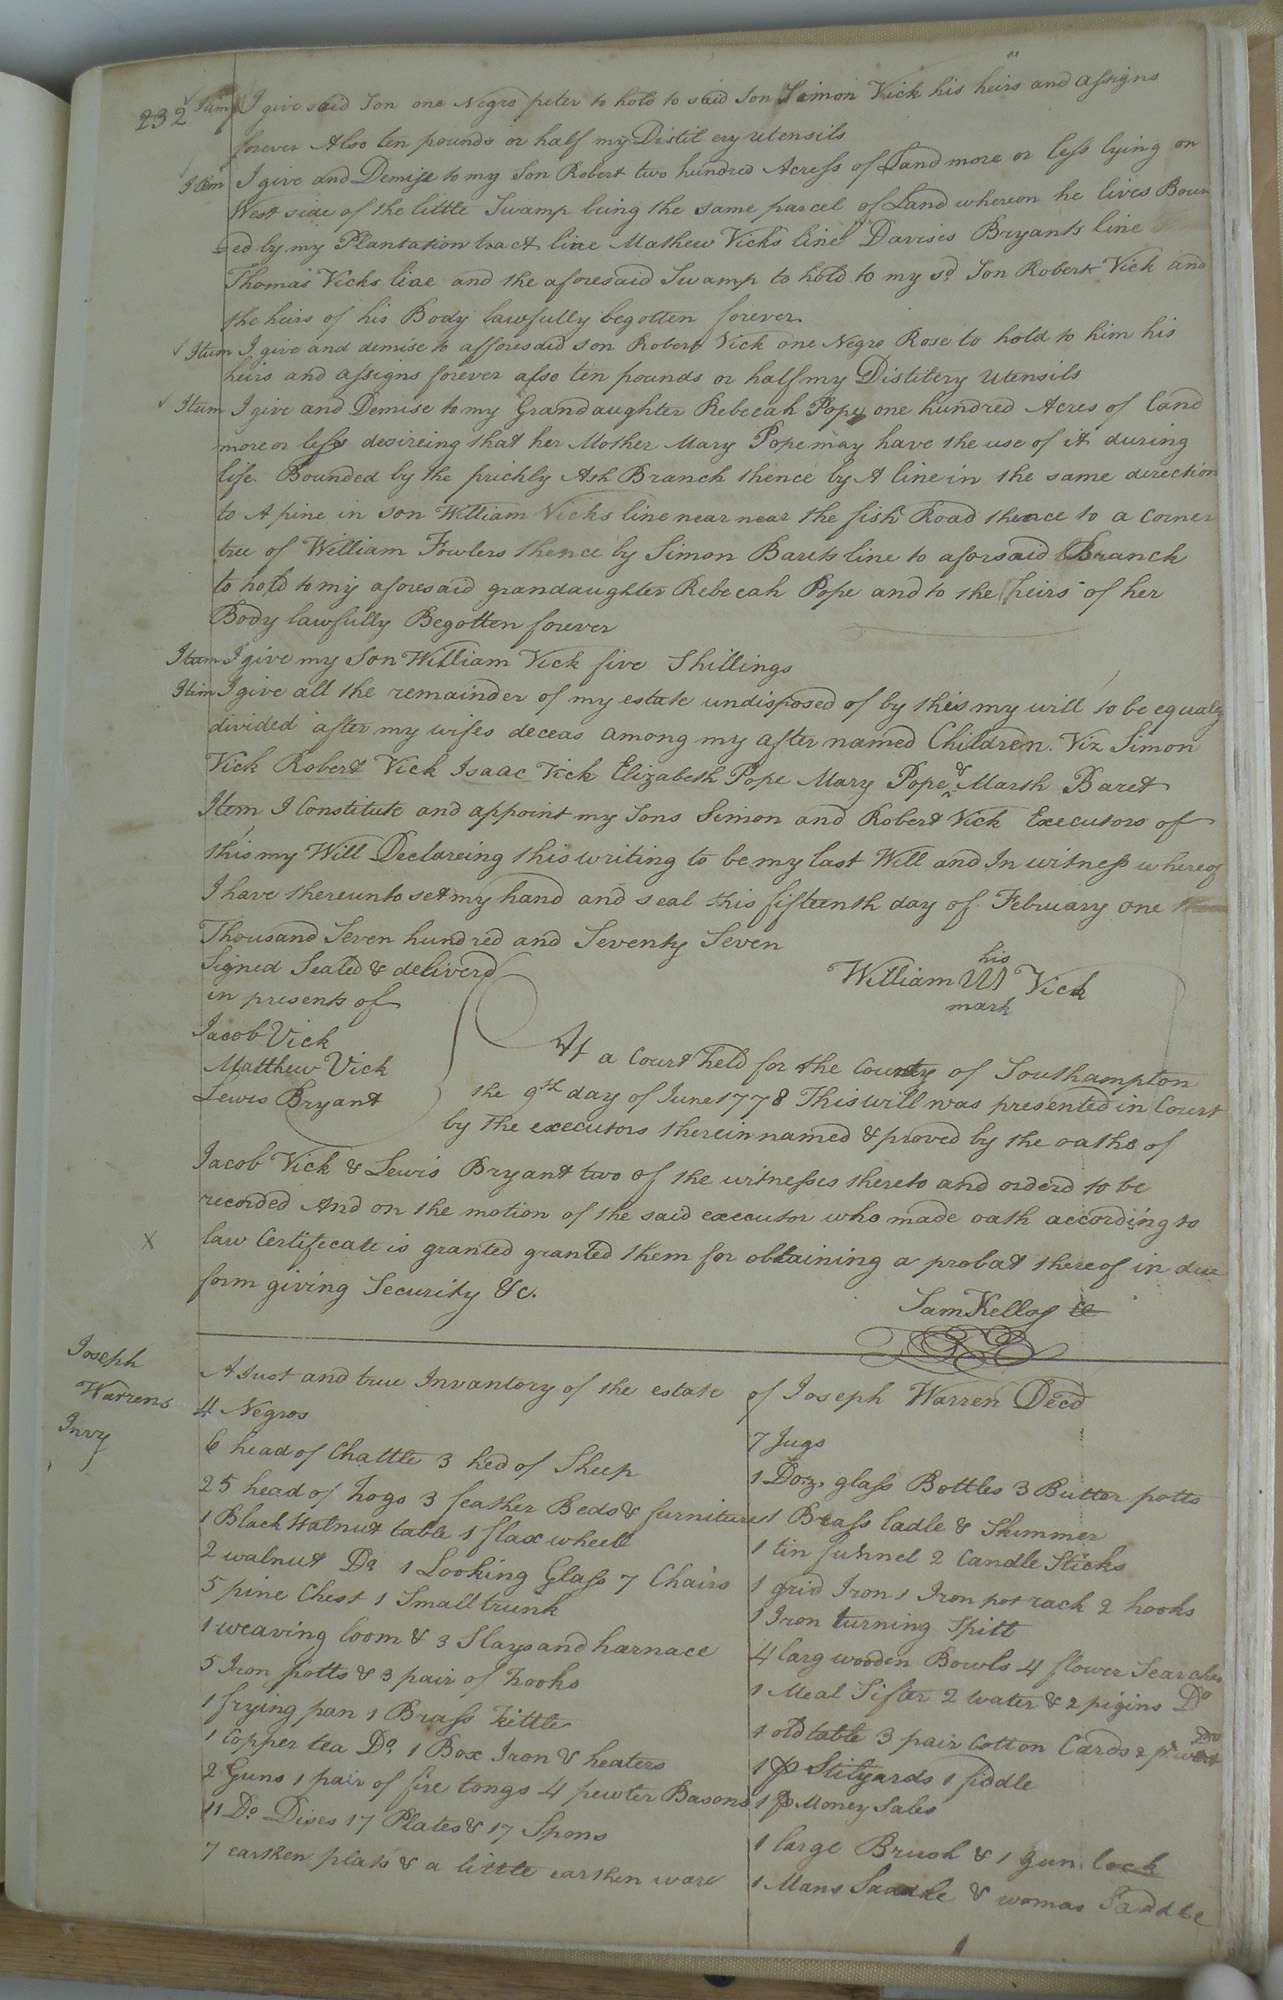 232
Itim I give said Son one Negro peter to hold to said Son Simon Vick his heirs and assigns
forever Also ten pounds or half my Distilery utensils
Item I give and Demise to my Son Robert two hundred Acress of Land more or less lying on
West side of the little Swamp being the same parcel of Land whereon he lives Boun
=ed by my Plantation tract line Mathew Vicks line Davises Bryants line
Thomas Vicks line and the aforesaid Swamp to hold to my sd Son Robert Vick and
the heirs of his Body lawfully begotten forever
Itum I give and demise to afforesaid son Robert Vick one Negro Rose to hold to him his
heirs and assigns forever also ten pounds or half my Distilery Utensils
Itum I give and Demise to my Grandaughter Rebecah Pope one hundred Acres of land
more or less desireing that her Mother Mary Pope may have the use of it during
life. Bounded by the prickly Ash Branch thence by A line in the same direction
to A pine in son William Vicks line near near the fish Road thence to a Corner
tree of William Fowlers thence by Simon Barets line to aforsaid Branch
to hold to my aforesaid grandaughter Rebecah Pope and to the heirs of her
Body lawfully Begotten forever
Itum I give my Son William Vick five Shillings
Itim I give all the remainder of my estate undisposed of by this my will to be equaly
divided after my wifes deceas among my after named Children. Viz Simon
Vick Robert Vick Isaac Vick Elizabeth Pope Mary Pope & Marth Baret
Item I Constitute and appoint my Sons Simon and Robert Vick Executors of
this my Will Declareing this writing to be my last Will and In witness whereof
I have thereunto set my hand and seal this fifteenth day of February one
Thousand Seven hundred and Seventy Seven
Signed Sealed & deliverd
in presents of
his
William W Vick
mark
Jacob Vick
Matthew Vick
Lewis Bryant
At a Court held for the County of Southampton
the 9th day of June 1778 This will was presented in Court
by the executors therein named & proved by the oaths of
Jacob Vick & Lewis Bryant two of the witnesses thereto and orderd to be
recorded And on the motion of the said executor who made oath according to
law Certificate is granted granted them for obtaining a probat thereof in due
form giving Security &c.
Sam Kello
Joseph
Warrens
Invy
A Just and true Invantory of the estate of Joseph Warren Decd
4 Negros
6 head of Chattle 3 hed of Sheep
25 head of hogs 3 feather Beds & furniture
1 Black Walnut table 1 flax wheel
2 walnut Do 1 Looking Glass 7 Chairs
5 pine Chest 1 Small trunk
1 weaving loom & 3 Slays and harnace
5 Iron potts & 3 pair of hooks
1 frying pan 1 Brass kittle
1 Copper tea Do 1 Box Iron & heaters
2 Guns 1 pair of fire tongs 4 pewter Basons
11 Do Dises 17 Plates & 17 Spons
7 earthen plats & a little earthen ware
7 Jugs
1 Doz. glass Bottles 3 Butter potts
1 Brass ladle & Skimmer
1 tin funnel 2 Candle Sticks
1 grid Iron 1 Iron pot rack 2 hooks
1 Iron turning Spitt
4 larg wooden Bowls 4 flower Searches
1 Meal Sifter 2 water & 2 pigins Do
1 old table 3 pair Cotton Cards 2 pr
1 p Stilyards 1 fiddle
1 p Money Sales
1 large Brush & 1 Gun lock
1 Mans Saddle & womas Saddle